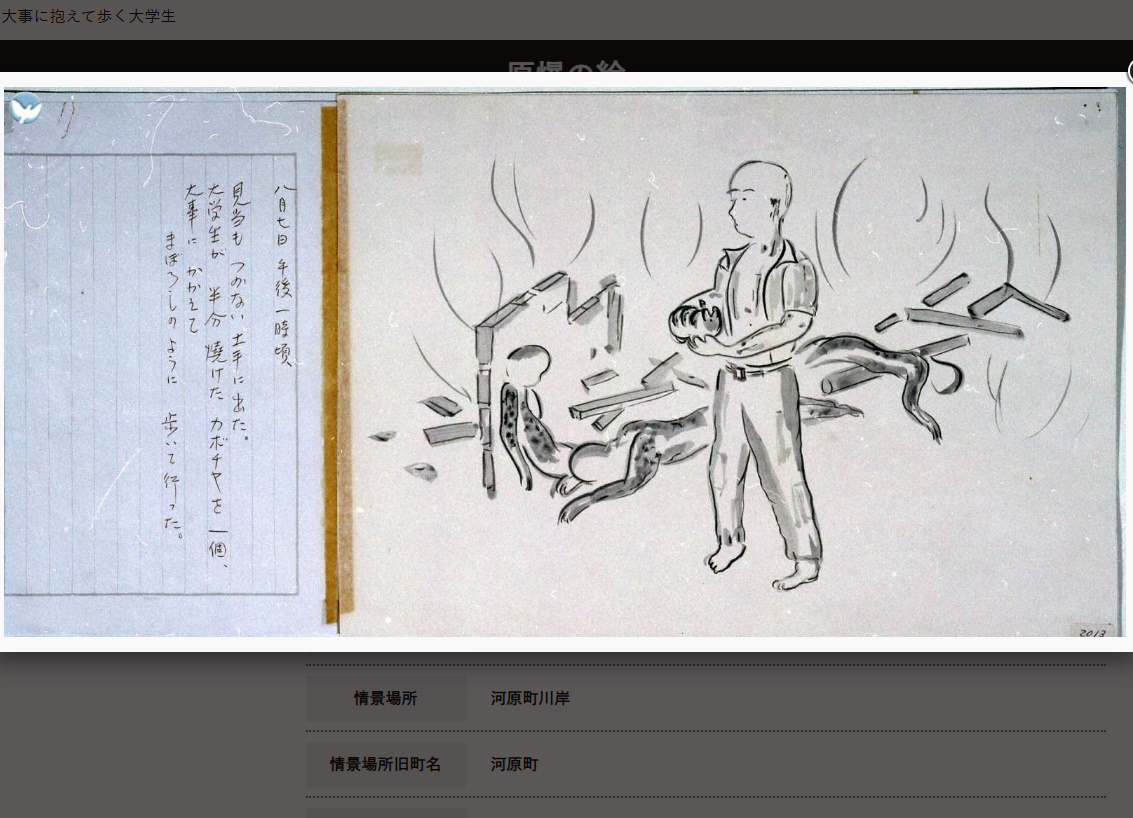 大事に抱えて歩く大学生
原爆の絵
八月七日 午後 一時頃
見当も つかない 土手に出た。
大学生が 半分 焼けた カボチヤを 一個、
大事に かかえて
まぼろしの ように 歩いて行った。
2013
情景場所
河原町川岸
情景場所旧町名
河原町